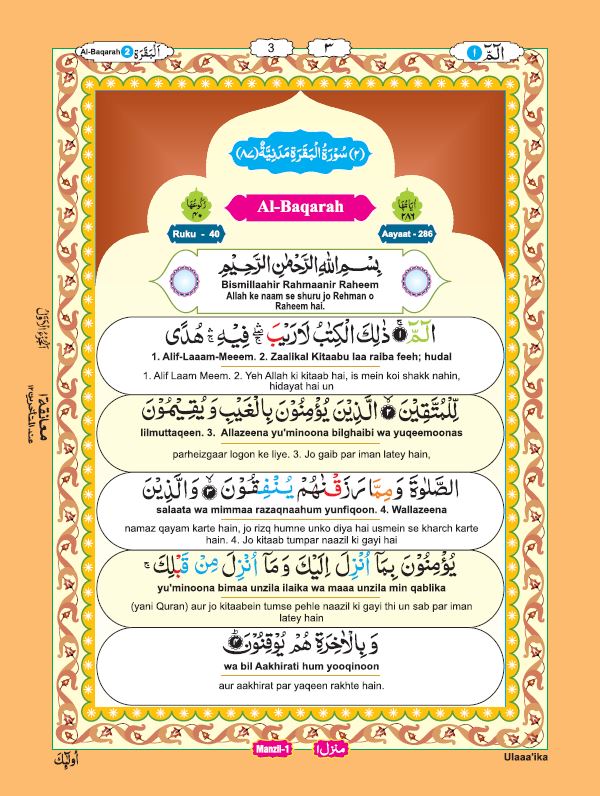 Al-Baqarah 2 اَلْبَقَرَة
3
٣
الٓمّٓ ١
(٢) سُوْرَةُ الْبَقَرَةِ مَدَنِيَّةٌ (٨٧)
رُكُوْعُهَا ٤٠
Al-Baqarah
اٰيَاتُهَا ٢٨٦
Ruku - 40
Aayaat - 286
بِسْمِ اللّٰهِ الرَّحْمٰنِ الرَّحِيْمِ
Bismillaahir Rahmaanir Raheem
Allah ke naam se shuru jo Rehman o
Raheem hai.
الٓمّٓ ۚ ١ ذٰلِكَ الْكِتٰبُ لَا رَيْبَ ۛ فِيْهِ ۛ هُدًى
1. Alif-Laaam-Meeem. 2. Zaalikal Kitaabu laa raiba feeh; hudal
1. Alif Laam Meem. 2. Yeh Allah ki kitaab hai, is mein koi shakk nahin,
hidayat hai un
لِّلْمُتَّقِيْنَ ٢ الَّذِيْنَ يُؤْمِنُوْنَ بِالْغَيْبِ وَ يُقِيْمُوْنَ
lilmuttaqeen. 3. Allazeena yu'minoona bilghaibi wa yuqeemoonas
parheizgaar logon ke liye. 3. Jo gaib par iman latey hain,
الصَّلٰوةَ وَ مِمَّا رَزَقْنٰهُمْ يُنْفِقُوْنَ ٣ وَالَّذِيْنَ
salaata wa mimmaa razaqnaahum yunfiqoon. 4. Wallazeena
namaz qayam karte hain, jo rizq humne unko diya hai usmein se kharch karte
hain. 4. Jo kitaab tumpar naazil ki gayi hai
يُؤْمِنُوْنَ بِمَآ اُنْزِلَ اِلَيْكَ وَ مَآ اُنْزِلَ مِنْ قَبْلِكَ ۚ
yu'minoona bimaa unzila ilaika wa maaa unzila min qablika
(yani Quran) aur jo kitaabein tumse pehle naazil ki gayi thi un sab par iman
latey hain
وَ بِالْاٰخِرَةِ هُمْ يُوْقِنُوْنَ ٤
wa bil Aakhirati hum yooqinoon
aur aakhirat par yaqeen rakhte hain.
اَلْجُزْءُ الْاَوَّلُ
معانقة ١
عند المتاخرين ١٢
Manzil-1
منزل ١
اُولٰٓئِكَ
Ulaaa'ika